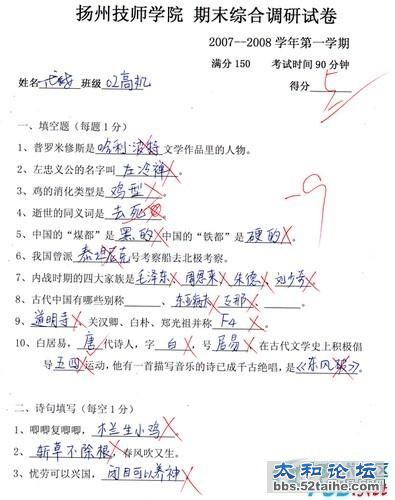 扬州技师学院 期末综合调研试卷
2007--2008 学年第一学期
满分 150 考试时间 90 分钟
姓名 班级 02高机 得分 5
一、填空题（每题 1 分）
-9
1、普罗米修斯是哈利·波特文学作品里的人物。
2、左忠义公的名字叫 左冷禅
3、鸡的消化类型是 鸡型
4、逝世的同义词是 去死
5、中国的“煤都”是 黑的 中国的“铁都”是 硬的。
6、我国曾派 泰坦尼克号考察船去北极考察。
7、内战时期的四大家族是毛泽东、周恩来、朱德、刘少奇
8、古代中国有哪些别称 、东亚病夫、支那、
9、道明寺、关汉卿、白朴、郑光祖并称 F4
10、白居易，唐 代诗人，字 白，号 居易，在古代文学史上积极倡
导 五四 运动，他有一首描写音乐的诗已成千古绝唱，是《东风破》。
二、诗句填写（每空 1 分）
1、唧唧复唧唧，木兰生小鸡
2、斩草不除根，春风吹又生。
3、忧劳可以兴国，闭目可以养神
太和论坛
bbs.52taihe.com